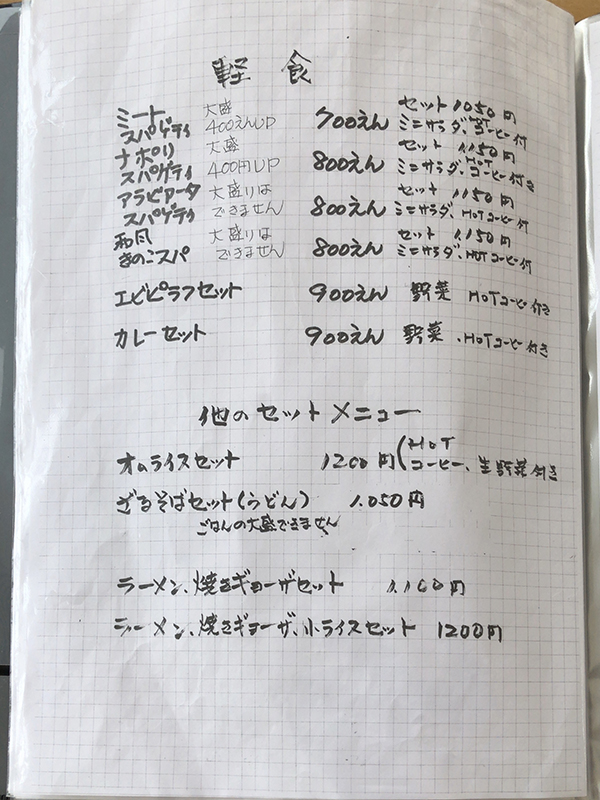 軽食
ミート 大盛 セット 1050円
スパゲティ 400えんUP 700えん ミニサラダ、HOTコーヒー付
ナポリ 大盛 セット 1.150円
スパゲティ 400円UP 800えん ミニサラダ、HOTコーヒー付き
アラビアータ 大盛りは セット 1.150円
スパゲティ できません 800えん ミニサラダ、HOTコーヒー付
和風 大盛りは セット 1.150円
きのこスパ できません 800えん ミニサラダ、HOTコーヒー付
エビピラフセット 900えん 野菜 HOTコーヒー付き
カレーセット 900えん 野菜、HOTコーヒー付き
他のセットメニュー
オムライスセット 1200円(HOTコーヒー、生野菜付き
ざるそばセット(うどん) 1.050円
ごはんの大盛できません
ラーメン、焼きギョーザセット 1.100円
ラーメン、焼きギョーザ、小ライスセット 1200円